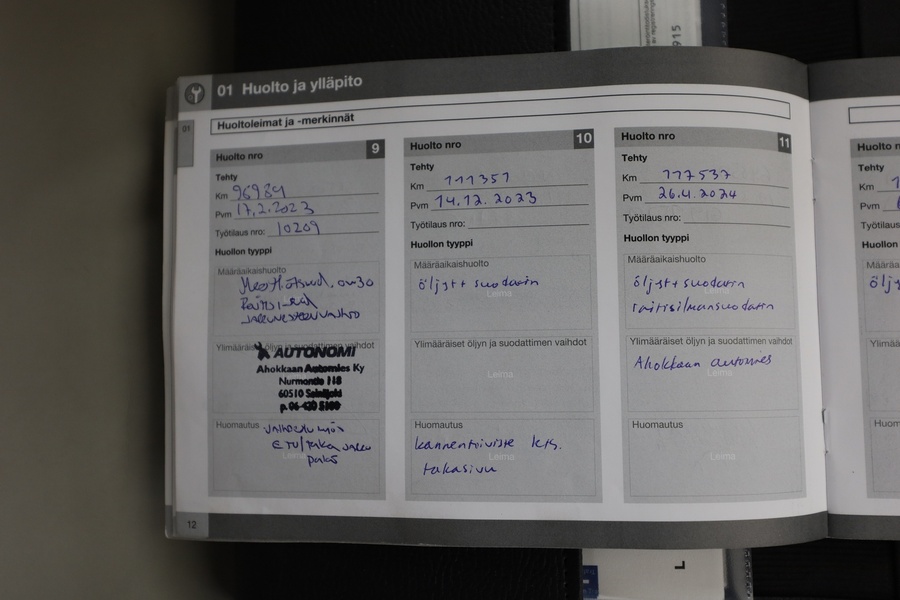 915
01 Huolto ja ylläpito
01
Huoltoleimat ja -merkinnät
Huolto nro 9
Tehty
Km 96984
Pvm 17.2.2023
Työtilaus nro: 10209
Huollon tyyppi
Määräaikaishuolto
0w30
Jarrunesteenvaihto
Ylimääräiset öljyn ja suodattimen vaihdot
AUTONOMI
Ahokkaan Automies Ky
Nurmontie 118
60510 Seinäjoki
Huomautus
etu/taka jarru
palat
Leima
Huolto nro 10
Tehty
Km 111351
Pvm 14.12.2023
Työtilaus nro:
Huollon tyyppi
Määräaikaishuolto
öljyt + suodatin
Leima
Ylimääräiset öljyn ja suodattimen vaihdot
Leima
Huomautus
kannentiiviste kts.
Leima
takasivu
Huolto nro 11
Tehty
Km 117537
Pvm 26.4.2024
Työtilaus nro:
Huollon tyyppi
Määräaikaishuolto
öljyt + suodatin
raitisilmansuodatin
Ylimääräiset öljyn ja suodattimen vaihdot
Ahokkaan automies
Leima
Huomautus
Leima
Huolto n
Tehty
Km
Pvm
Työtilaus
Huollon
Määrä
öljy
Ylimää
Huom
12